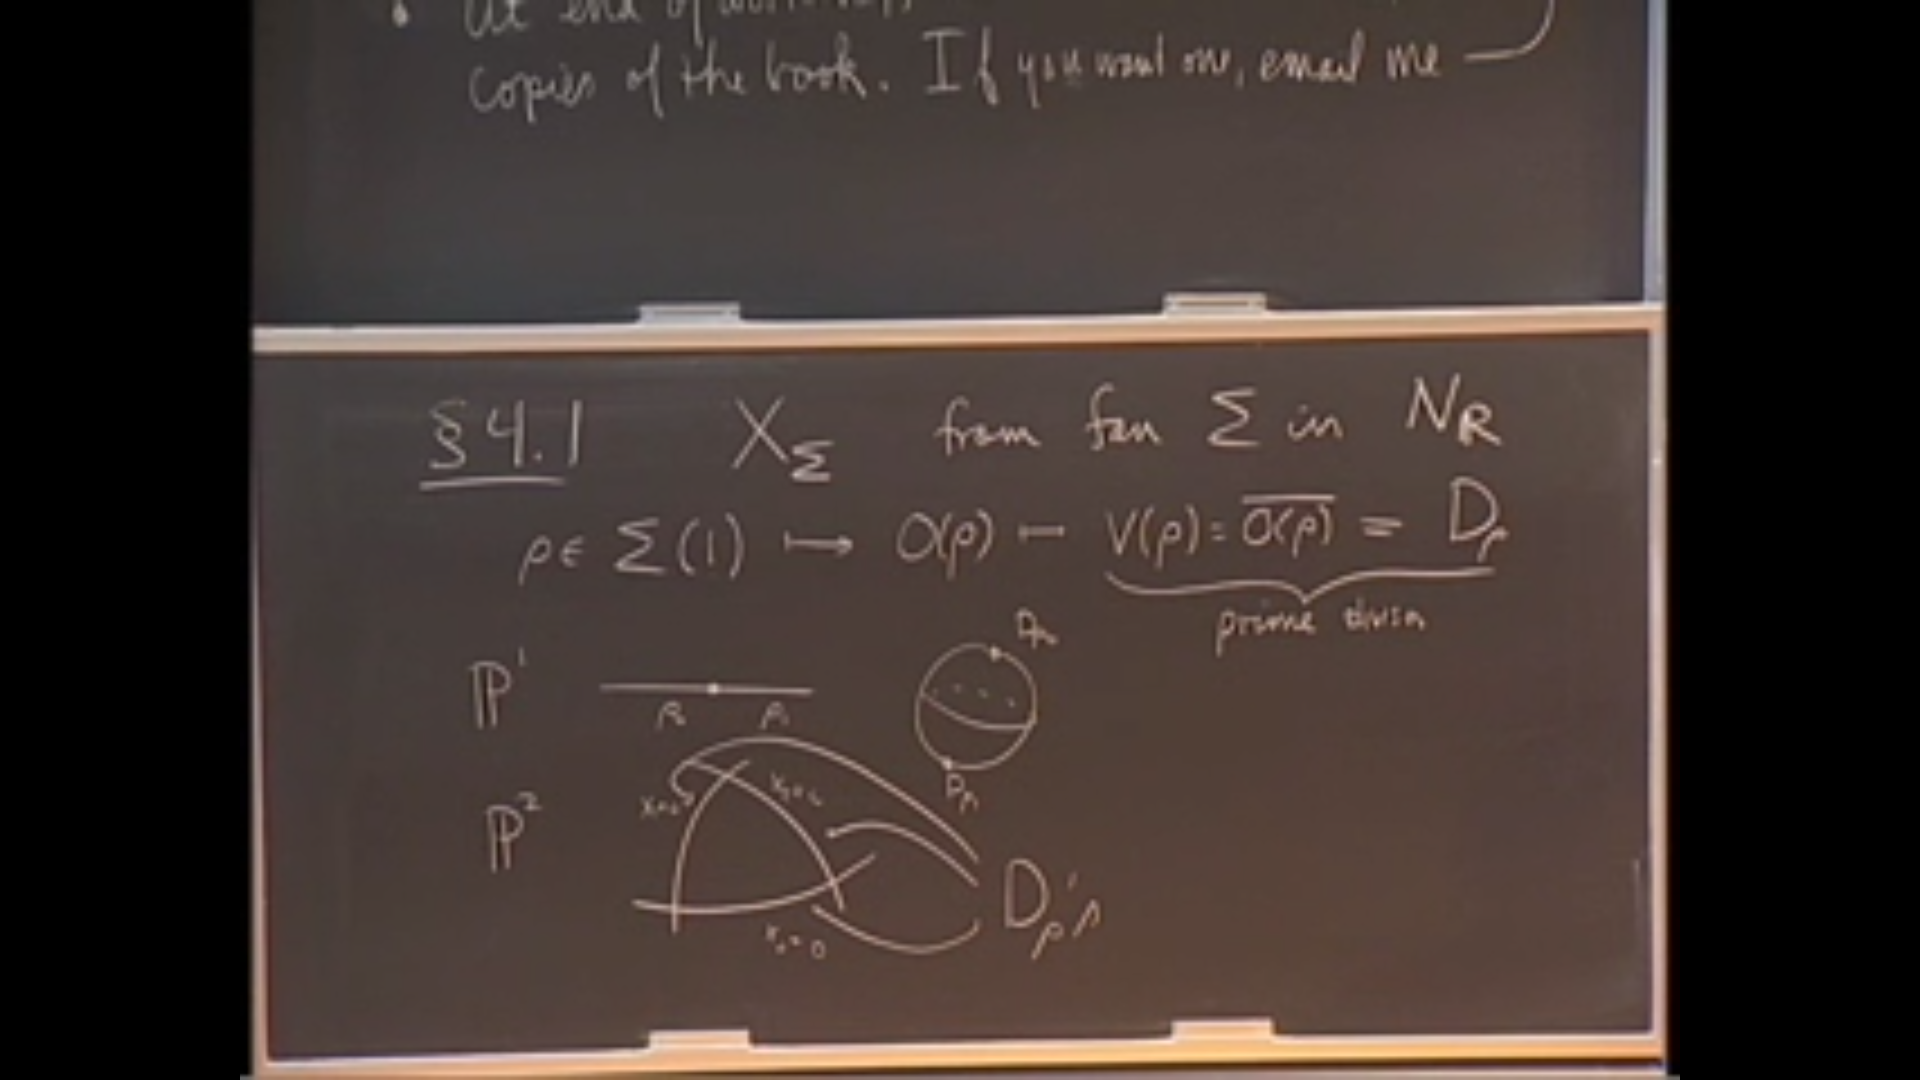 • At end of
copies of the book. If you want one, email me
§4.1 X_Σ from fan Σ in N_R
ρ ∈ Σ(1) ↦ O(ρ) – V(ρ) = \overline{O(ρ)} = D_ρ
prime divisor
D_ρ₀
ℙ¹
ρ₀ ρ₁
D_ρ₁
ℙ²
D_ρ's
x₀=0